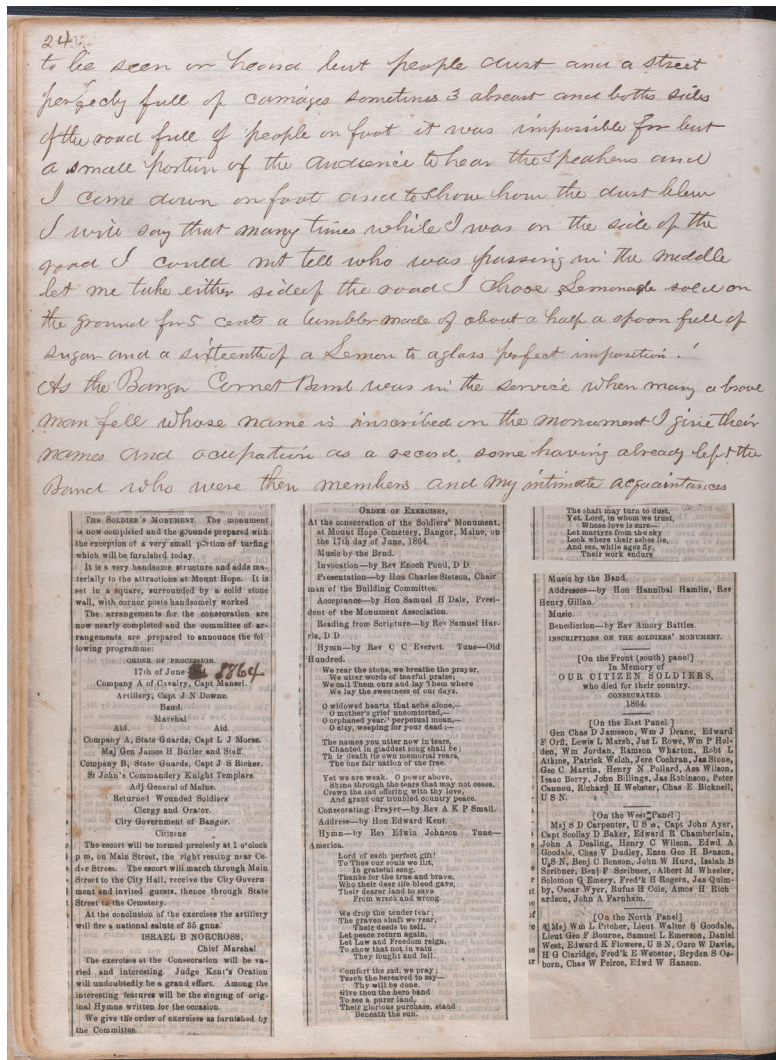 24
to be seen or heard but people dust and a street
perfectly full of carriages sometimes 3 abreast and both sides
of the road full of people on foot it was impossible for but
a small portion of the audience to hear the speakers and
I came down on foot and to show how the dust blew
I will say that many times while I was on the side of the
road I could not tell who was passing in the middle
let me take either side of the road I chose Lemonade sold on
the ground for 5 cents a tumbler made of about a half a spoon full of
sugar and a sixteenth of a Lemon to a glass perfect imposition!
As the Bangor Cornet Band was in the service when many a brave
man fell whose name is inscribed on the monument I give their
names and ocupation as a record some having already left the
Band who were then members and my intimate acquaintances
THE SOLDIER'S MONUMENT The monument
is now completed and the grounds prepared with
the exception of a very small portion of turfing
which will be furnished today.
It is a very handsome structure and adds ma-
terially to the attractions at Mount Hope. It is
set in a square, surrounded by a solid stone
wall, with corner posts handsomely worked
The arrangements for the consecration are
now nearly completed and the committee of ar-
rangements are prepared to announce the fol
lowing programme:
ORDER OF PROCESSION.
17th of June 1864
Company A of Cavalry, Capt Mansel.
Artillery, Capt J N Downe.
Band.
Marshal
Aid. Aid.
Company A, State Guards, Capt L J Morse.
Maj Gen James H Butler and Staff.
Company B, State Guards, Capt J S Ricker.
St John's Commandery Knight Templars.
Adj General of Maine.
Returned Wounded Soldiers
Clergy and Orator.
City Government of Bangor.
Citizens
The escort will be formed precisely at 1 o'clock
p m, on Main Street, the right resting near Ce-
dar Street. The escort will march through Main
Street to the City Hall, receive the City Govern
ment and invited guests, thence through State
Street to the Cemetery.
At the conclusion of the exercises the artillery
will fire a national salute of 35 guns.
ISRAEL B NORCROSS,
Chief Marshal
The exercises at the Consecration will be va-
ried and interesting Judge Kent's Oration
will undoubtedly be a grand effort. Among the
interesting features will be the singing of orig-
inal Hymns written for the occasion.
We give the order of exercises as furnished by
the Committee.
ORDER OF EXERCISES,
At the consecration of the Soldiers' Monument,
at Mount Hope Cemetery, Bangor, Maine, on
the 17th day of June, 1864.
Music by the Band.
Invocation—by Rev Enoch Pond, D D
Presentation—by Hon Charles Stetson, Chair
man of the Building Committee.
Acceptance—by Hon Samuel H Dale, Presi-
dent of the Monument Association.
Reading from Scripture—by Rev Samuel Har-
ris, D D
Hymn—by Rev C C Everett. Tune—Old
Hundred.
We rear the stone, we breathe the prayer,
We utter words of tearful praise;
We call Them ours and lay Them where
We lay the sweetness of our days.
O widowed hearts that ache alone,—
O mother's grief uncomforted,—
O orphaned years' perpetual moan,—
O city, weeping for your dead:—
The names you utter now in tears,
Chanted in gladdest song shall be;
Th ir death its own memorial rears,
The one fair nation of the free.
Yet we are weak. O power above,
Shine through the tears that may not cease.
Crown the sad offering with thy love,
And grant our troubled country peace.
Consecrating Prayer—by Rev A K P Small.
Address—by Hon Edward Kent.
Hymn—by Rev Edwin Johnson. Tune—
America.
Lord of each perfect gift!
To Thee our souls we lift,
In grateful song.
Thanks for the true and brave,
Who their dear life blood gave,
Their dearer land to save
From wreck and wrong.
We drop the tender tear;
The graven shaft we rear,
Their deeds to tell.
Let peace return again,
Let Law and Freedom reign,
To show that not in vain
They fought and fell.
Comfort the sad, we pray;
Teach the bereaved to say—
Thy will be done.
Give thou the hero band
To see a purer land,
Their glorious purchase, stand
Beneath the sun.
The shaft may turn to dust,
Yet, Lord, in whom we trust,
Whose love is sure—
Let martyrs from the sky
Look where their ashes lie,
And see, while ages fly,
Their work endure
Music by the Band.
Addresses—by Hon Hannibal Hamlin, Rev
Henry Gillan.
Music.
Benediction—by Rev Amory Battles.
INSCRIPTIONS ON THE SOLDIERS' MONUMENT.
[On the Front (south) panel]
In Memory of
OUR CITIZEN SOLDIERS,
who died for their country.
CONSECRATED
1864.
[On the East Panel.]
Gen Chas D Jameson, Wm J Deane, Edward
F Orff, Lewis L Marsh, Jas L Rowe, Wm P Hol-
den, Wm Jordan, Ramson Wharton, Robt L
Atkins, Patrick Welch, Jere Cochran, Jas Stone,
Geo C Martin, Henry N Pollard, Asa Wilson,
Isaac Berry, John Billings, Jas Robinson, Peter
Cannon, Richard H Webster, Chas E Bicknell,
U S N.
[On the West Panel]
Maj S D Carpenter, U S A, Capt John Ayer,
Capt Scollay D Baker, Edward R Chamberlain,
John A Dealing, Henry C Wilson, Edwd A
Goodale, Chas V Dudley, Ensn Geo H Benson,
U S N, Benj C Benson, John W Hurd, Isaiah B
Scribner, Benj F Scribner, Albert M Wheeler,
Solomon Q Emery, Fred'k H Rogers, Jas Quim-
by, Oscar Wyer, Rufus H Cole, Amos H Rich
ardson, John A Farnham.
[On the North Panel]
Maj Wm L Pitcher, Lieut Walter S Goodale,
Lieut Geo F Bourne, Samuel L Emerson, Daniel
West, Edward K Flowers, U S N, Ozro W Davis,
H G Claridge, Fred'k E Webster, Bryden S Os-
born, Chas W Peirce, Edwd W Hanson.